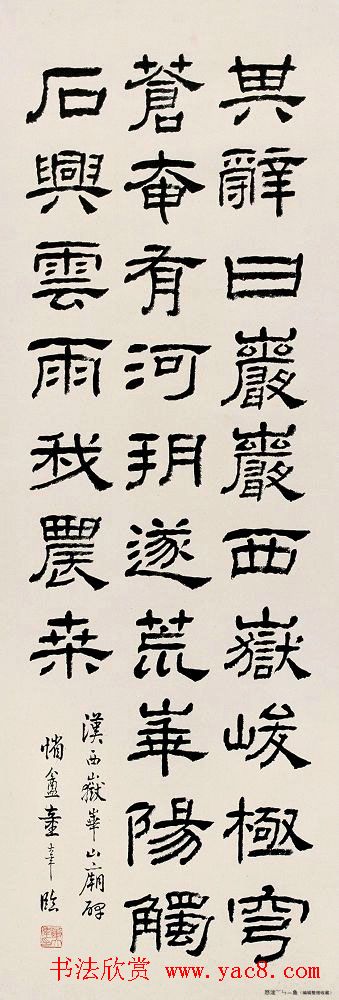 其辭曰巖巖西嶽峻極穹
蒼奄有河朔遂荒華陽觸
石興雲雨我農桑
漢西嶽華山廟碑
盦 臨
书法欣赏 www.yac8.com